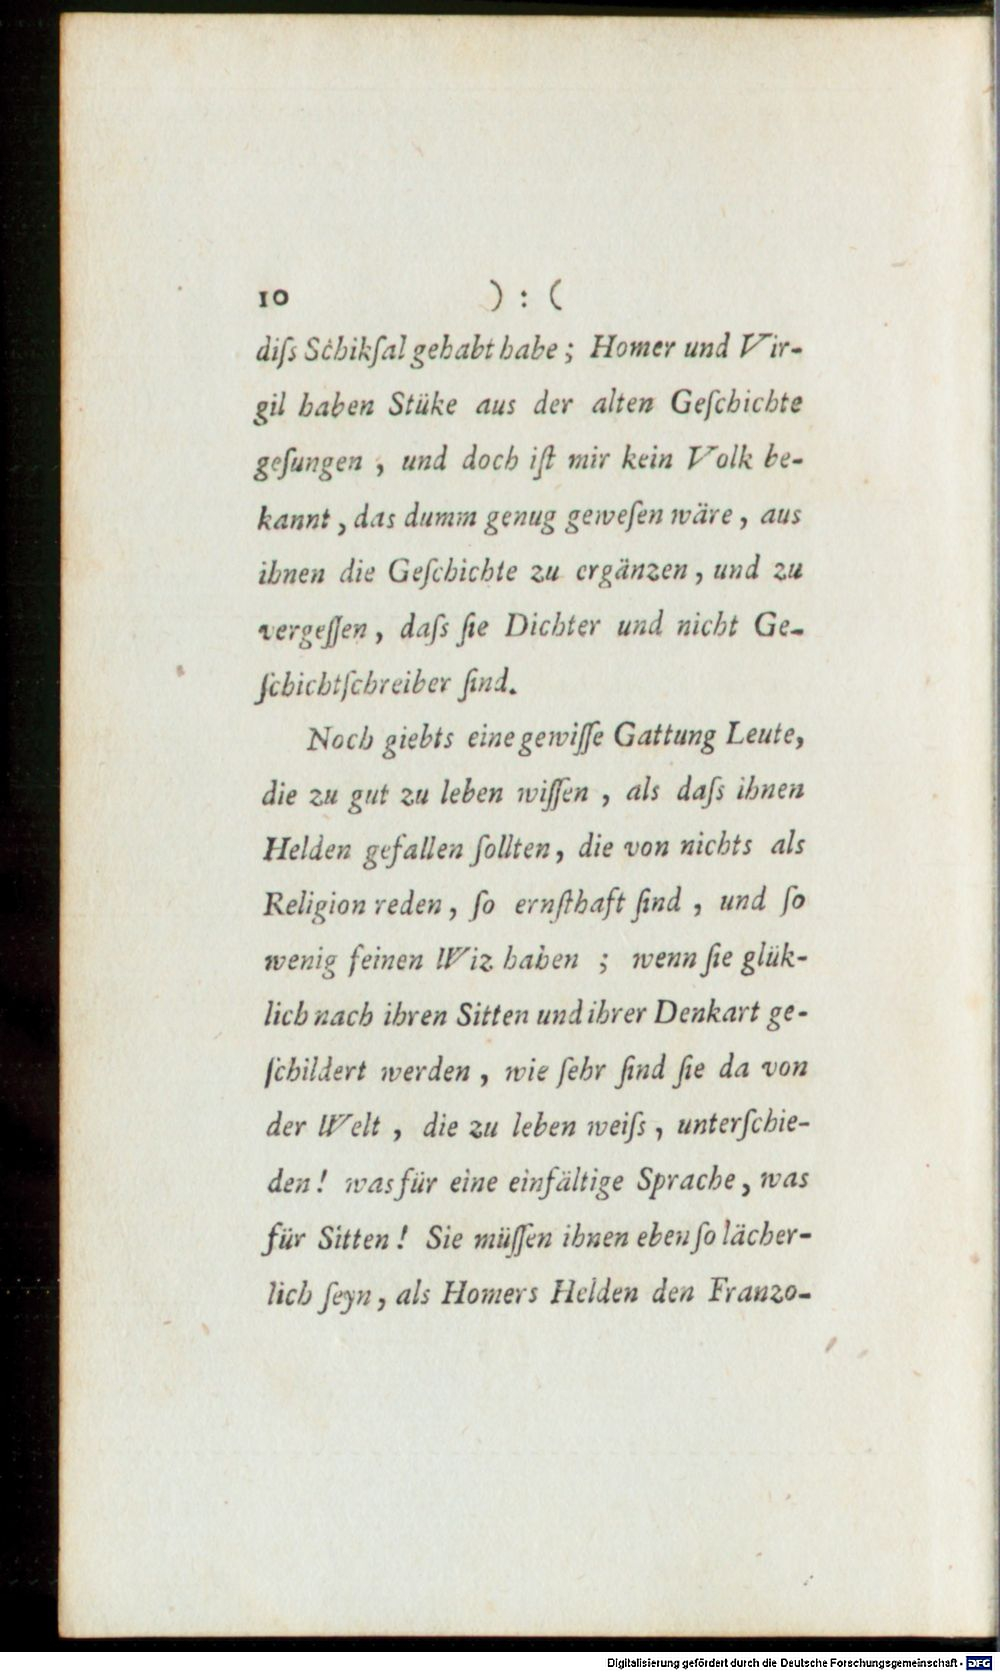 10 ) : (
diſs Schikſal gehabt habe; Homer und Vir-
gil haben Stüke aus der alten Geſchichte
geſungen, und doch iſt mir kein Volk be-
kannt, das dumm genug geweſen wäre, aus
ihnen die Geſchichte zu ergänzen, und zu
vergeſſen, daſs ſie Dichter und nicht Ge-
ſchichtſchreiber ſind.
Noch giebts eine gewiſſe Gattung Leute,
die zu gut zu leben wiſſen, als daſs ihnen
Helden gefallen ſollten, die von nichts als
Religion reden, ſo ernſthaft ſind, und ſo
wenig feinen Wiz haben; wenn ſie glük-
lich nach ihren Sitten und ihrer Denkart ge-
ſchildert werden, wie ſehr ſind ſie da von
der Welt, die zu leben weiſs, unterſchie-
den! was für eine einfältige Sprache, was
für Sitten! Sie müſſen ihnen eben ſo lächer-
lich ſeyn, als Homers Helden den Franzo-
Digitalisierung gefördert durch die Deutsche Forschungsgemeinschaft - DFG